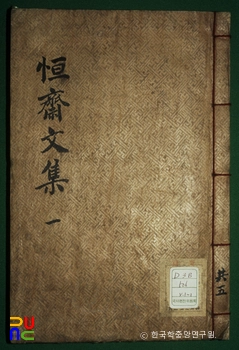 恒齋文集 一
共五
© 한국학중앙연구원